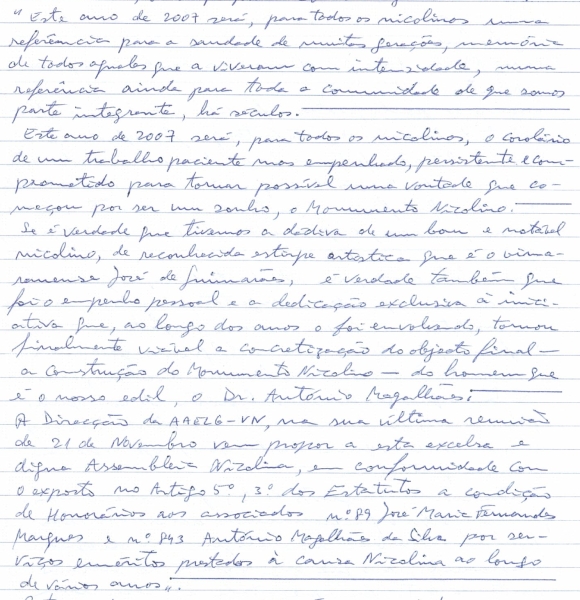 "Este ano de 2007 será, para todos os nicolinos uma
referência para a saudade de muitas gerações, memória
de todos aqueles que a viveram com intensidade, numa
referência ainda para toda a comunidade de que somos
parte integrante, há séculos.
Este ano de 2007 será, para todos os nicolinos, o corolário
de um trabalho paciente mas empenhado, persistente e com-
prometido para tornar possível uma vontade que co-
meçou por ser um sonho, o Monumento Nicolino.
Se é verdade que tivemos a dádiva de um bom e notável
nicolino, de reconhecida estirpe artística que é o vima-
ranense José de Guimarães, é verdade também que
foi o empenho pessoal e a dedicação exclusiva à inici-
ativa que, ao longo dos anos o foi envolvendo, tornou
finalmente viável a concretização do objecto final -
a construção do Monumento Nicolino - do homem que
é o nosso edil, o Dr. António Magalhães.
A Direcção da AAELG-VN, na sua última reunião
de 21 de Novembro vem propor a esta excelsa e
digna Assembleia Nicolina, em conformidade com
o exposto no Artigo 5º, 3º dos Estatutos a condição
de Honorários aos associados nº 89 José Maria Fernandes
Marques e nº 843 António Magalhães da Silva por ser-
viços eméritos prestados à causa Nicolina ao longo
de vários anos".